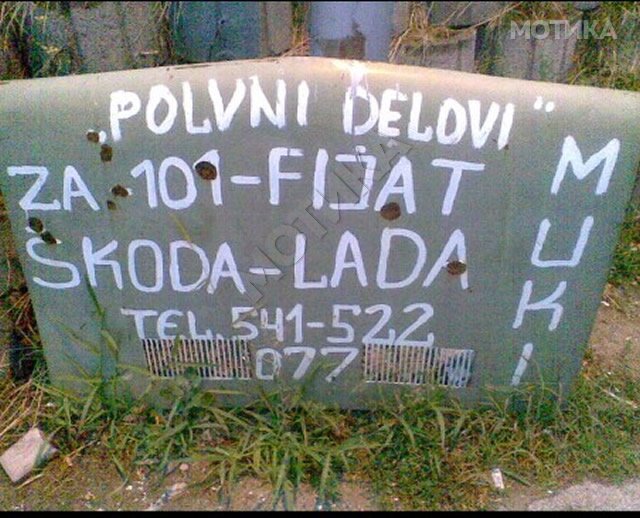 МОТИКА
„POLVNI DELOVI“
ZA 101-FIJAT
ŠKODA-LADA
TEL. 541-522
077
MUKI
МОТИКА